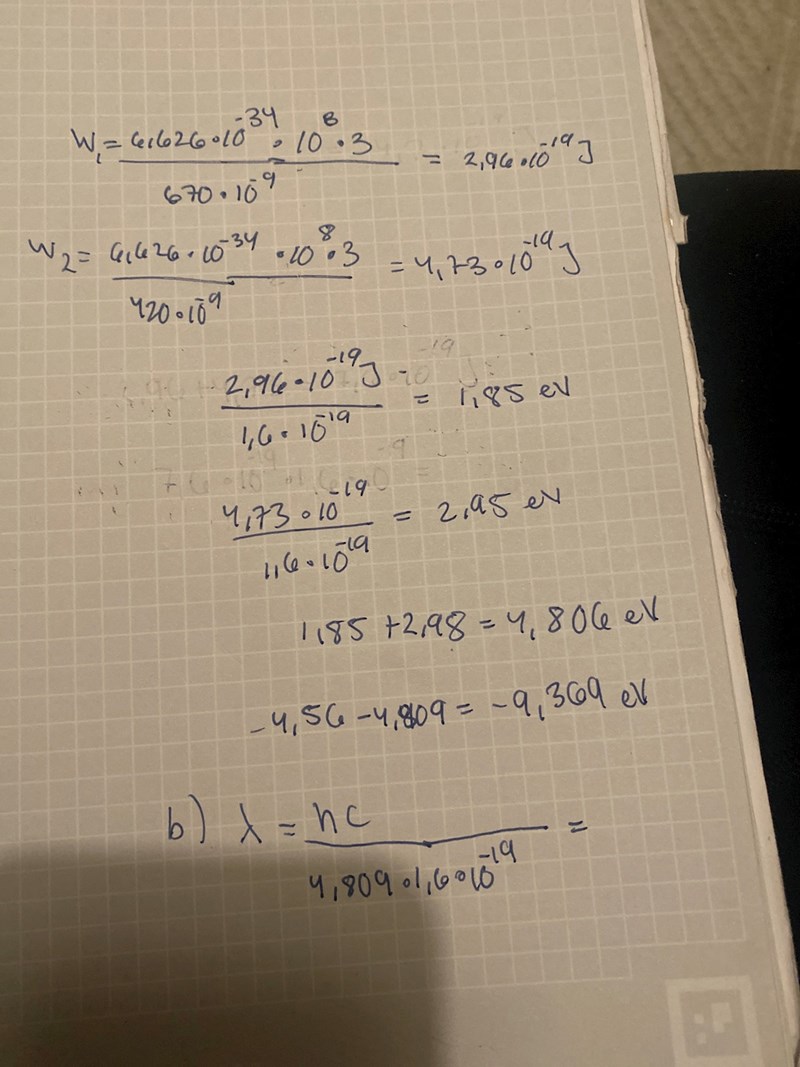 W₁ = 6,626·10⁻³⁴·10⁸·3 / 670·10⁻⁹ = 2,96·10⁻¹⁹ J
W₂ = 6,626·10⁻³⁴·10⁸·3 / 420·10⁻⁹ = 4,73·10⁻¹⁹ J
2,96·10⁻¹⁹ J / 1,6·10⁻¹⁹ = 1,85 eV
4,73·10⁻¹⁹ / 1,6·10⁻¹⁹ = 2,95 eV
1,85 + 2,98 = 4,806 eV
-4,56 - 4,809 = -9,369 eV
b) λ = hc / 4,809·1,6·10⁻¹⁹ =